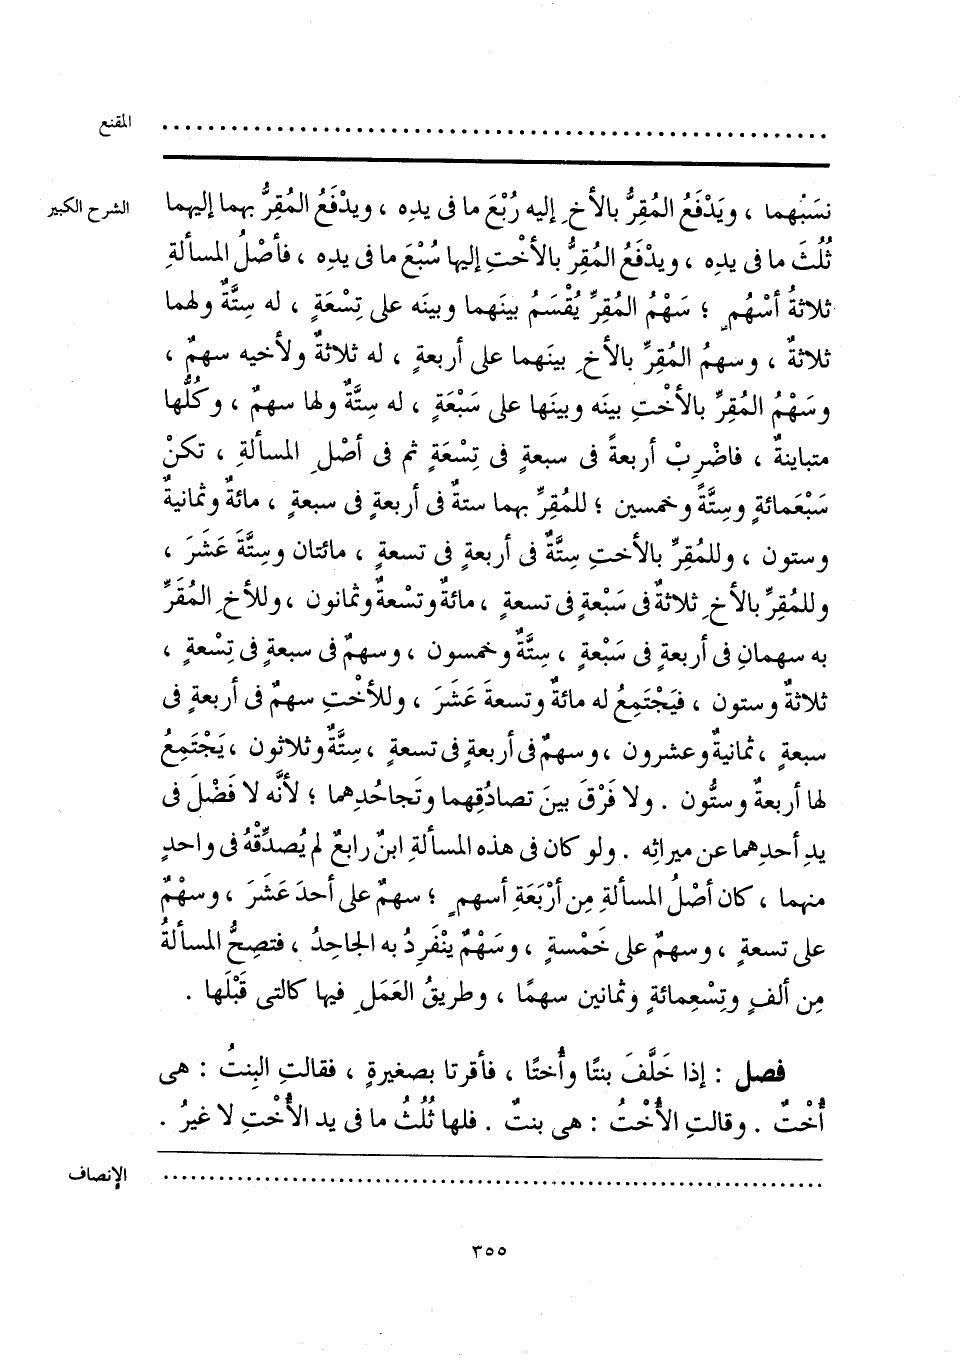 المقنع ..........
الشرح الكبير
نسَبَهما ، ويَدْفَعُ المُقِرُّ بالأخِ إليه رُبْعَ ما فى يدِه ، ويدْفَعُ المُقِرُّ بهما إليهما
ثُلُثَ ما فى يدِه ، ويدْفَعُ المُقِرُّ بالأخْتِ إليها سُبْعَ ما فى يدِه ، فأصْلُ المسألةِ
ثلاثةُ أسْهُمٍ ؛ سَهْمُ المُقِرِّ يُقْسَمُ بينَهما وبينَه على تِسْعَةٍ ، له سِتَّةٌ ولهما
ثلاثةٌ ، وسهمُ المُقِرِّ بالأخِ بينَهما على أربعةٍ ، له ثلاثةٌ ولأخيه سهمٌ ،
وسَهْمُ المُقِرِّ بالأخْتِ بينَه وبينَها على سَبْعَةٍ ، له سِتَّةٌ ولها سهمٌ ، وكُلُّها
متباينةٌ ، فاضْرِبْ أربعةً فى سبعةٍ فى تِسْعَةٍ ثم فى أصْلِ المسألةِ ، تكنْ
سَبْعَمائةٍ وسِتَّةً وخمسين ؛ للمُقِرِّ بهما ستةٌ فى أربعةٍ فى سبعةٍ ، مائةٌ وثمانيةٌ
وستون ، وللمُقِرِّ بالأختِ سِتَّةٌ فى أربعةٍ فى تسعةٍ ، مائتان وسِتَّةَ عَشَرَ ،
وللمُقِرِّ بالأخِ ثلاثةٌ فى سَبْعةٍ فى تسعةٍ ، مائةٌ وتسْعةٌ وثمانون ، وللأخِ المُقَرِّ
به سهمانِ فى أربعةٍ فى سَبْعةٍ ، سِتَّةٌ وخمسون ، وسهمٌ فى سبعةٍ فى تِسْعةٍ ،
ثلاثةٌ وستون ، فيَجْتَمِعُ له مائةٌ وتسعةَ عَشَرَ ، وللأخْتِ سهمٌ فى أربعةٍ فى
سبعةٍ ، ثمانيةٌ وعشرون ، وسهمٌ فى أربعةٍ فى تسعةٍ ، سِتَّةٌ وثلاثون ، يَجْتَمِعُ
لها أربعةٌ وستُّون . ولا فَرْقَ بينَ تصادُقِهما وتَجاحُدِهما ؛ لأنَّه لا فَضْلَ فى
يدِ أحدِهما عن ميراثِه . ولو كان فى هذه المسألةِ ابنٌ رابعٌ لم يُصدِّقْهُ فى واحدٍ
منهما ، كان أصْلُ المسألةِ مِن أرْبَعَةِ أسهمٍ ؛ سهمٌ على أحدَ عَشَرَ ، وسهْمٌ
على تسعةٍ ، وسهمٌ على خَمْسةٍ ، وسَهْمٌ ينْفَرِدُ به الجاحِدُ ، فتصِحُّ المسألةُ
مِن ألفٍ وتِسْعِمائةٍ وثمانين سهمًا ، وطريقُ العَمَلِ فيها كالتى قَبْلَها .
فصل : إذا خَلَّفَ بنتًا وأُختًا ، فأقرتا بصغيرةٍ ، فقالتِ البِنتُ : هى
أُخْتٌ . وقالتِ الأُخْتُ : هى بنتٌ . فلها ثُلُثُ ما فى يد الأُخْتِ لا غيرُ .
الإنصاف ..........
٣٥٥